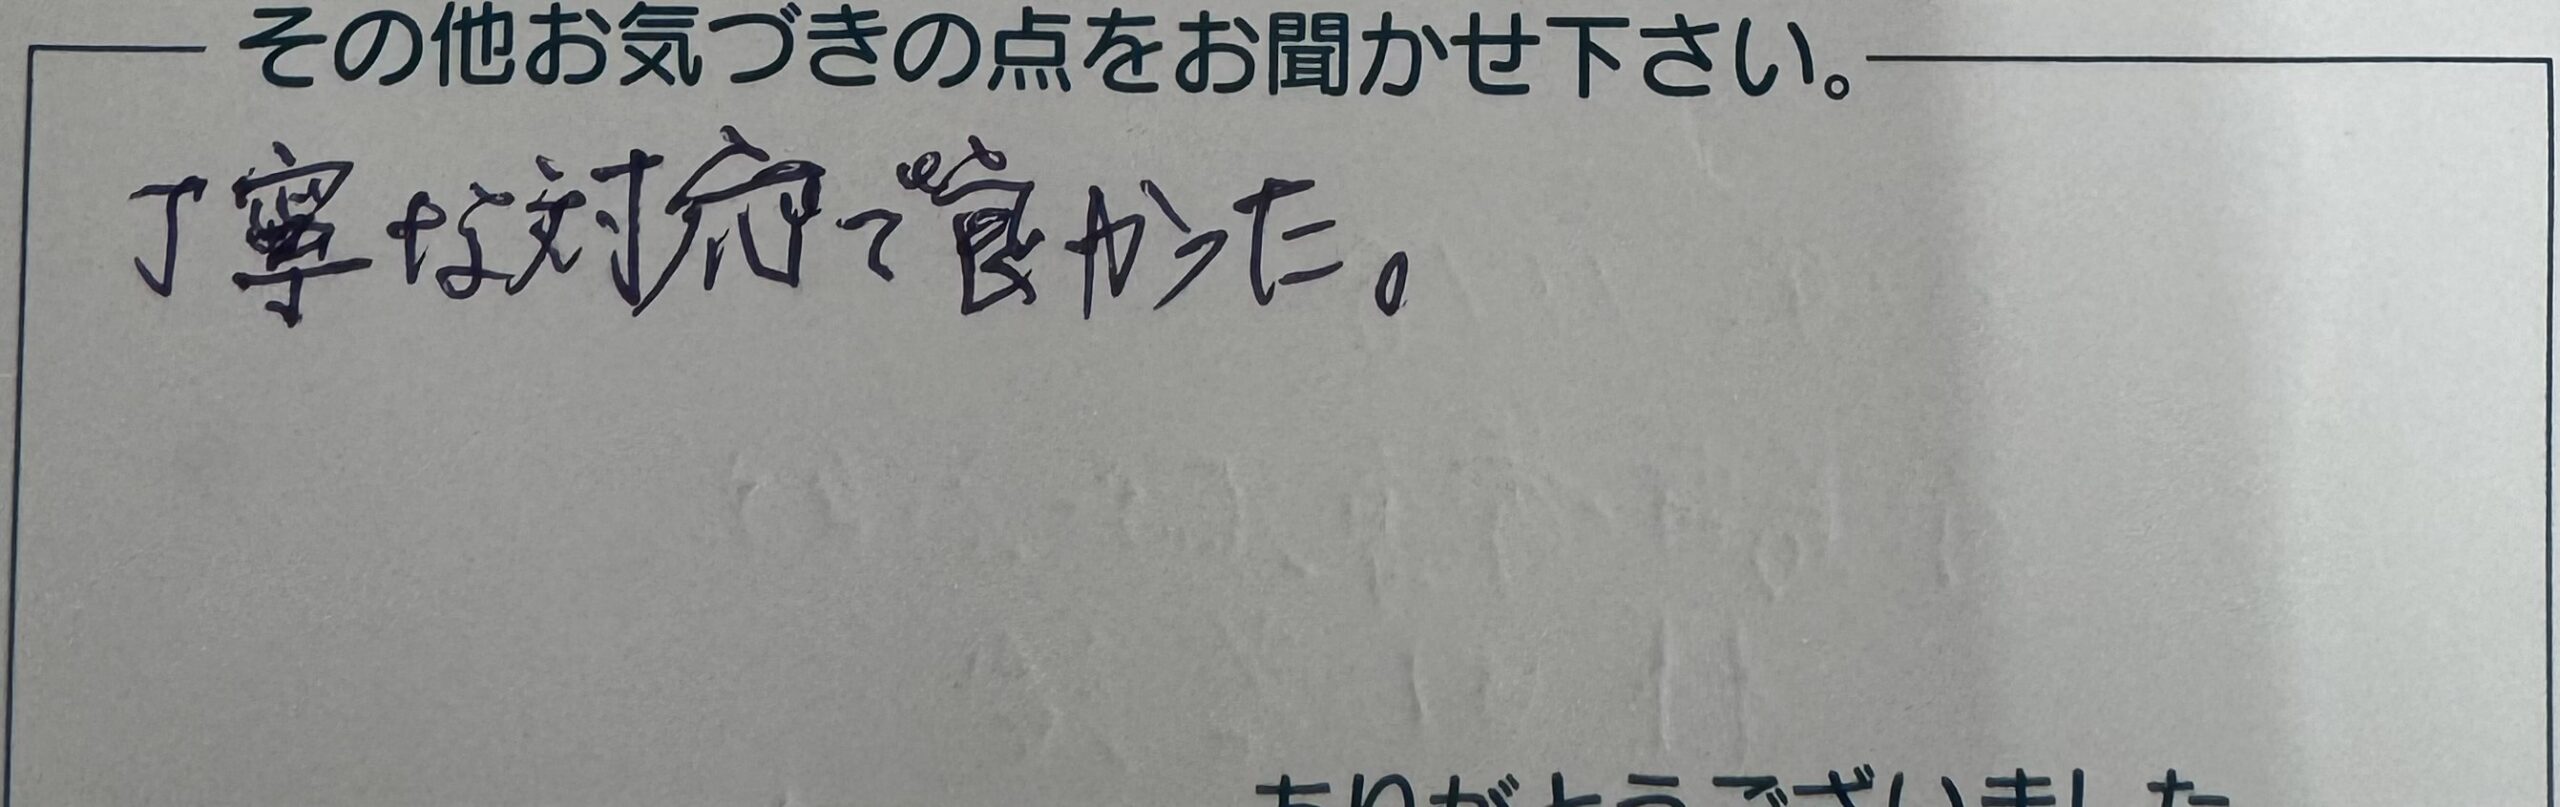 その他お気づきの点をお聞かせ下さい。
丁寧な対応で良かった。
ありがとうございました